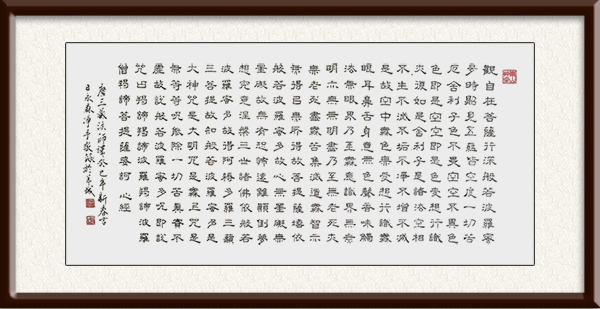 觀自在菩薩行深般若波羅蜜
多時照見五蘊皆空度一切苦
厄舍利子色不異空空不異色
色即是空空即是色受想行識
亦復如是舍利子是諸法空相
不生不滅不垢不淨不增不減
是故空中無色無受想行識無
眼耳鼻舌身意無色聲香味觸
法無眼界乃至無意識界無無
明亦無無明盡乃至無老死亦
無老死盡無苦集滅道無智亦
無得以無所得故菩提薩埵依
般若波羅蜜多故心無罣礙無
罣礙故無有恐怖遠離顛倒夢
想究竟涅槃三世諸佛依般若
波羅蜜多故得阿耨多羅三藐
三菩提故知般若波羅蜜多是
大神咒是大明咒是無上咒是
無等等咒能除一切苦真實不
虛故說般若波羅蜜多咒即說
咒曰揭諦揭諦波羅揭諦波羅
僧揭諦菩提薩婆訶 心經
唐三藏法師譯癸巳年新春書